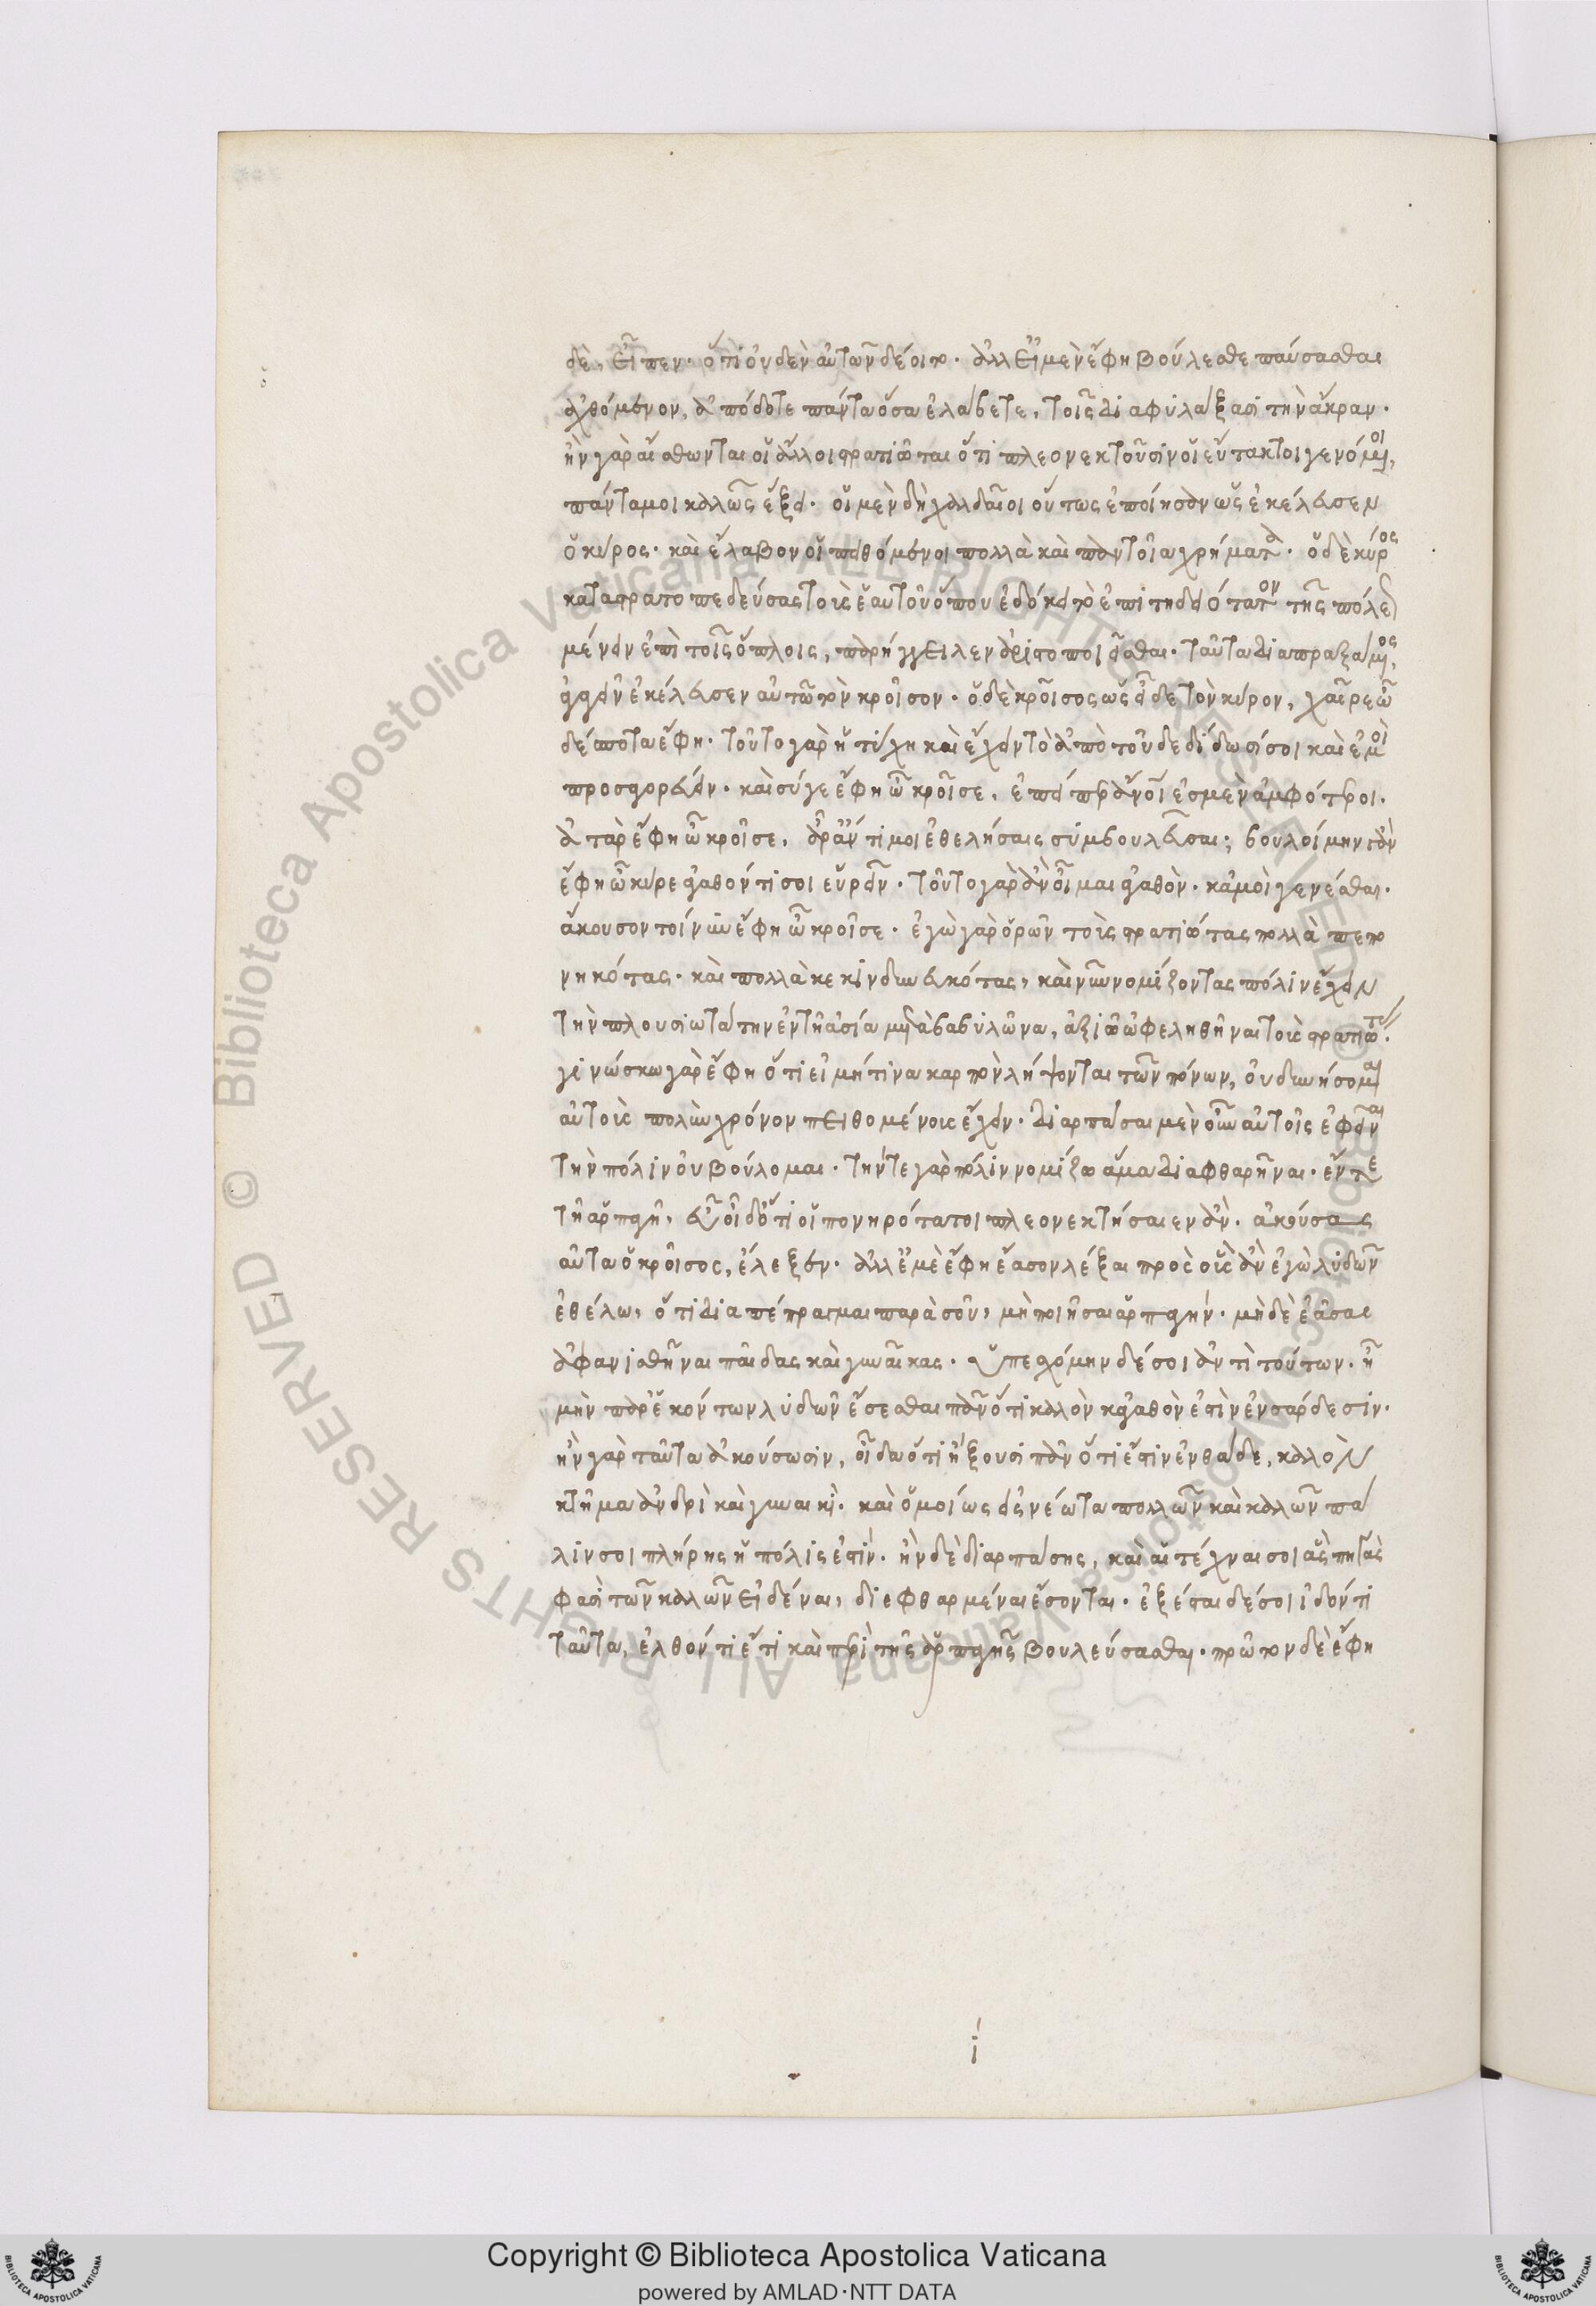 δὲ, εἶπεν· ὅτι οὐδὲν αὐτῶν δέοιτο. ἀλλ' εἰ μὲν ἔφη βούλεσθε παύσασθαι
ἀχθόμενον, ἀπόδοτε πάντα ὅσα ἐλάβετε, τοῖς διαφυλάξασι τὴν ἄκραν.
ἢν γὰρ αἴσθωνται οἱ ἄλλοι στρατιῶται ὅτι πλεονεκτοῦσιν οἱ εὔτακτοι γενόμενοι,
πάντα μοι καλῶς ἕξει. οἱ μὲν δὴ χαλδαῖοι οὕτως ἐποίησαν ὡς ἐκέλευσεν
ὁ κῦρος. καὶ ἔλαβον οἱ πειθόμενοι πολλὰ καὶ παντοῖα χρήματα. ὁ δὲ κῦρος
καταστρατοπεδεύσας τοὺς ἑαυτοῦ ὅπου ἐδόκει τὸ ἐπιτηδειότατον τῆς πόλεως
μένειν ἐπὶ τοῖς ὅπλοις, παρήγγειλεν ἀριστοποιεῖσθαι. ταῦτα διαπραξάμενος,
ἀγαγεῖν ἐκέλευσεν αὐτῷ τὸν κροῖσον. ὁ δὲ κροῖσος ὡς εἶδε τὸν κῦρον, χαῖρε ὦ
δέσποτα ἔφη. τοῦτο γὰρ ἡ τύχη καὶ ἔχειν τὸ ἀπὸ τοῦδε δίδωσί σοι καὶ ἐμοὶ
προσαγορεύειν. καὶ σύ γε ἔφη ὦ κροῖσε, ἐπείπερ ἄνθρωποί ἐσμεν ἀμφότεροι.
ἀτὰρ ἔφη ὦ κροῖσε, ἆρ' ἄν τί μοι ἐθελήσαις συμβουλεῦσαι; βουλοίμην γ' ἂν
ἔφη ὦ κῦρε ἀγαθόν τί σοι εὑρεῖν. τοῦτο γὰρ ἂν οἶμαι ἀγαθὸν. κἀμοὶ γενέσθαι.
ἄκουσον τοίνυν ἔφη ὦ κροῖσε. ἐγὼ γὰρ ὁρῶν τοὺς στρατιώτας πολλὰ πεπο
νηκότας. καὶ πολλὰ κεκινδυνευκότας, καὶ νῦν νομίζοντας πόλιν ἔχειν
τὴν πλουσιωτάτην ἐν τῇ ἀσίᾳ μετὰ βαβυλῶνα, ἀξιῶ ὠφεληθῆναι τοὺς στρατιώτας.
γινώσκω γὰρ ἔφη ὅτι εἰ μή τινα καρπὸν λήψονται τῶν πόνων, οὐ δυνήσομαι
αὐτοὺς πολὺν χρόνον πειθομένους ἔχειν. διαρπάσαι μὲν οὖν αὐτοῖς ἐφεῖναι
τὴν πόλιν οὐ βούλομαι. τήν τε γὰρ πόλιν νομίζω ἅμα διαφθαρῆναι. ἔν τε
τῇ ἁρπαγῇ, εὖ οἶδ' ὅτι οἱ πονηρότατοι πλεονεκτήσαιεν ἄν. ἀκούσας
αὖτα ὁ κροῖσος, ἔλεξεν. ἀλλ' ἐμὲ ἔφη ἔασον λέξαι πρὸς οὓς ἂν ἐγὼ λυδῶν
ἐθέλω, ὅτι διαπέπραγμαι παρὰ σοῦ, μὴ ποιῆσαι ἁρπαγήν. μὴ δὲ ἐᾶσαι
ἀφανισθῆναι παῖδας καὶ γυναῖκας. ὑπεσχόμην δέ σοι ἀντὶ τούτων. ἦ
μὴν παρ' ἑκόντων λυδῶν ἔσεσθαι πᾶν ὅτι καλὸν κἀγαθὸν ἐστὶν ἐν σάρδεσιν.
ἢν γὰρ ταῦτα ἀκούσωσιν, οἶδα ὅτι ἥξουσι πᾶν ὅτι ἔστιν ἐνθάδε, καλὸν
κτῆμα ἀνδρὶ καὶ γυναικὶ. καὶ ὁμοίως εἰς νέωτα πολλῶν καὶ καλῶν πά
λιν σοι πλήρης ἡ πόλις ἐστίν. ἢν δὲ διαρπάσῃς, καὶ αἱ τέχναι σοι ἃς πηγὰς
φασὶ τῶν καλῶν εἰδέναι, διεφθαρμέναι ἔσονται. ἐξέσται δέ σοι ἰδόντι
ταῦτα, ἐλθόντι ἔτι καὶ περὶ τῆς ἁρπαγῆς βουλεύσασθαι. πρῶτον δὲ ἔφη
ί
© Biblioteca Apostolica Vaticana ALL RIGHTS RESERVED
Copyright © Biblioteca Apostolica Vaticana
powered by AMLAD·NTT DATA